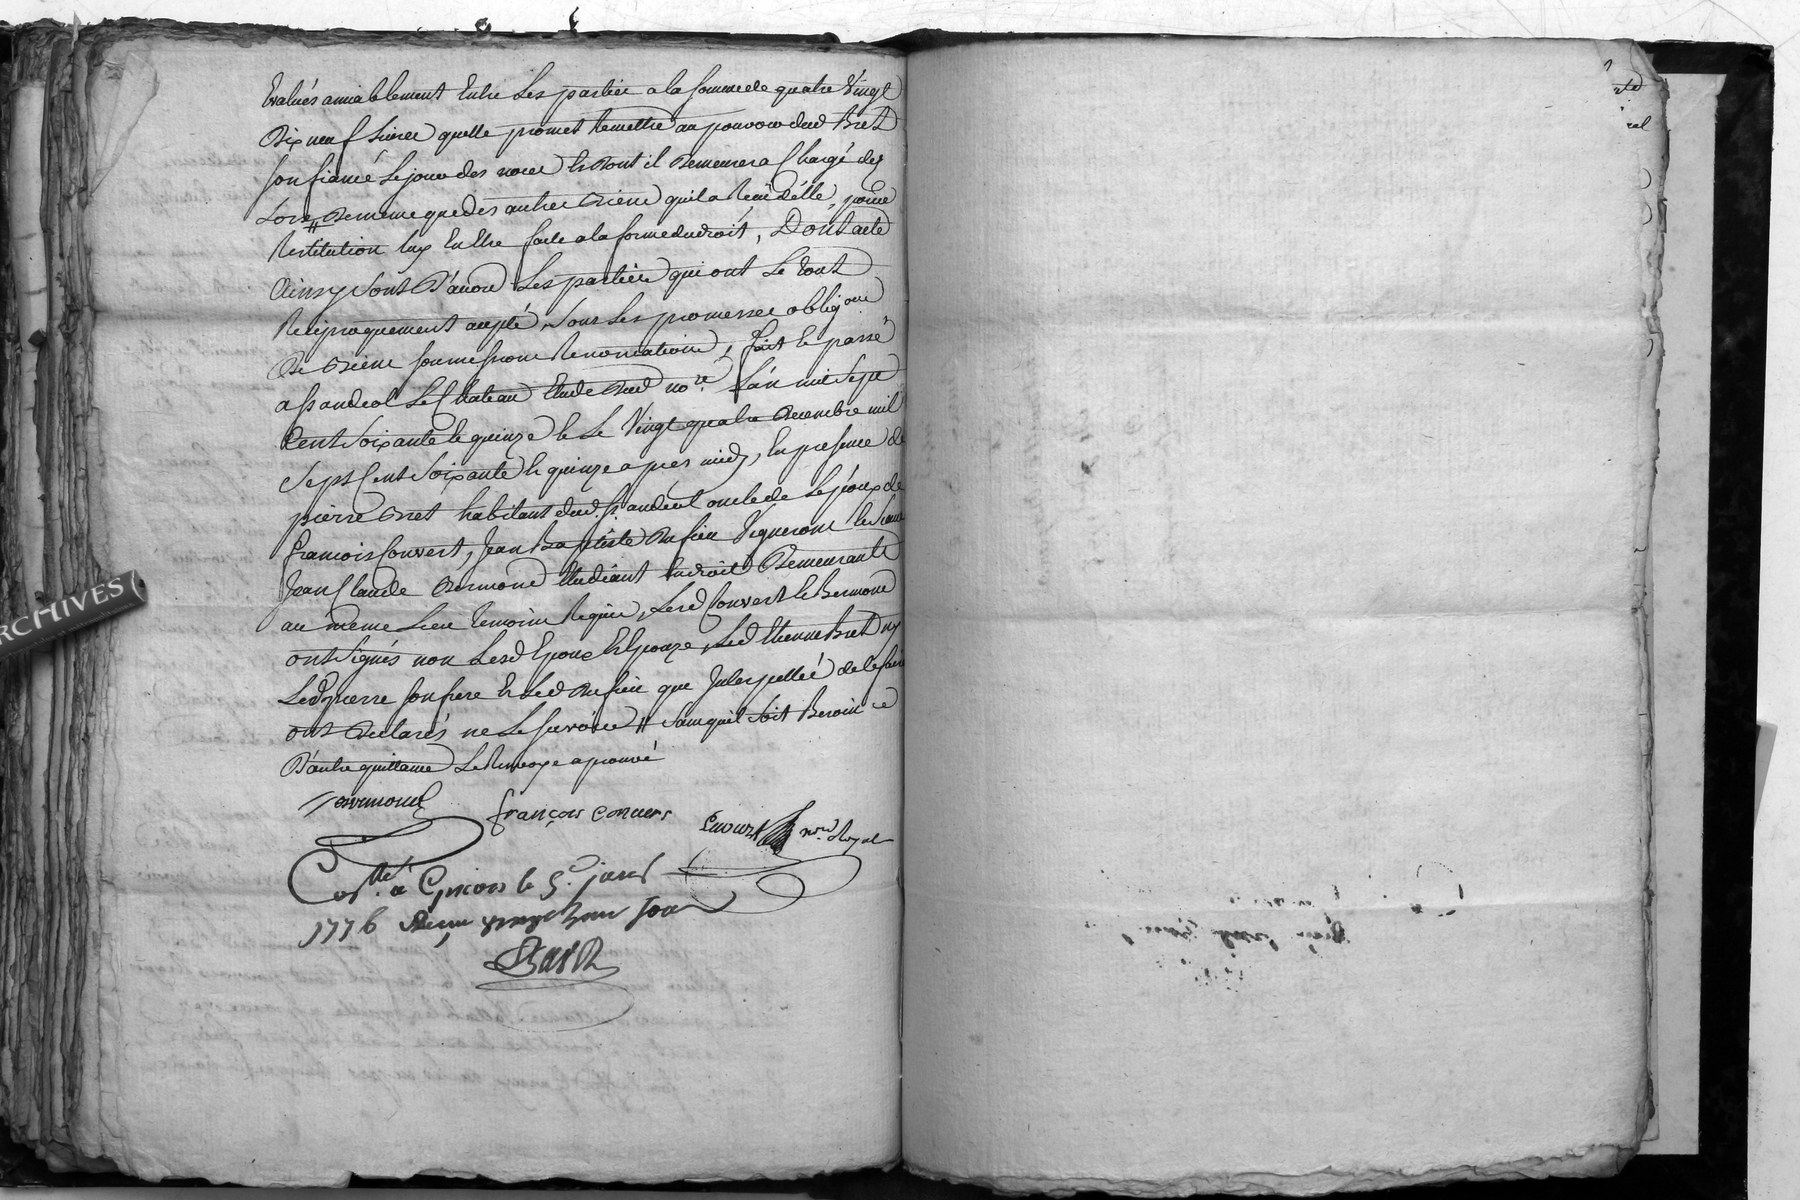 Evalués amiablement Entre Les parties a la somme de quatre Vingt
Dix neuf Livres quelle promet Remettre au pouvoir dud Bret
son fiancé Le jour des noces et Dont il Demeurera Chargé des
Lors // De meme que des autres Biens qu'il a Recu d'elle, pour
Restitution luy En Etre faite a la forme du droit, Dont acte
Ainsy sont D'accord Les parties qui ont Le tout
Reciproquement accepté, Sous Les promesses obligõns
De Biens soumissions Renonciations, fait et passé
a St andeol Le Chateau Etude Dud no.re L'an mil sept
Cent Soixante et quinze et Le Vingt quatre Decembre mil
Sept Cent Soixante et quinze apres midy, En presence de
pierre Bret habitant dud. St. andeol oncle de L'epoux de
francois Convert, Jean Baptiste Vigneron et Sieur
Jean Claude Bermond Etudiant En droit Demeurants
au meme Lieu temoins Requis, Lesd Convert et Bermond
ont Signés non Lesd Epoux et Epouze, Led Etienne Bret ny
Led pierre son frere et Led que Interpellés de le faire
ont Declarés ne Le sçavoir // Sans quil soit Besoin
D'autre quittance Le Renvoye aprouvé
Bermond
françois convers
no.re Royal
Con.llé a Givors le 5.e janv.
1776 Recu